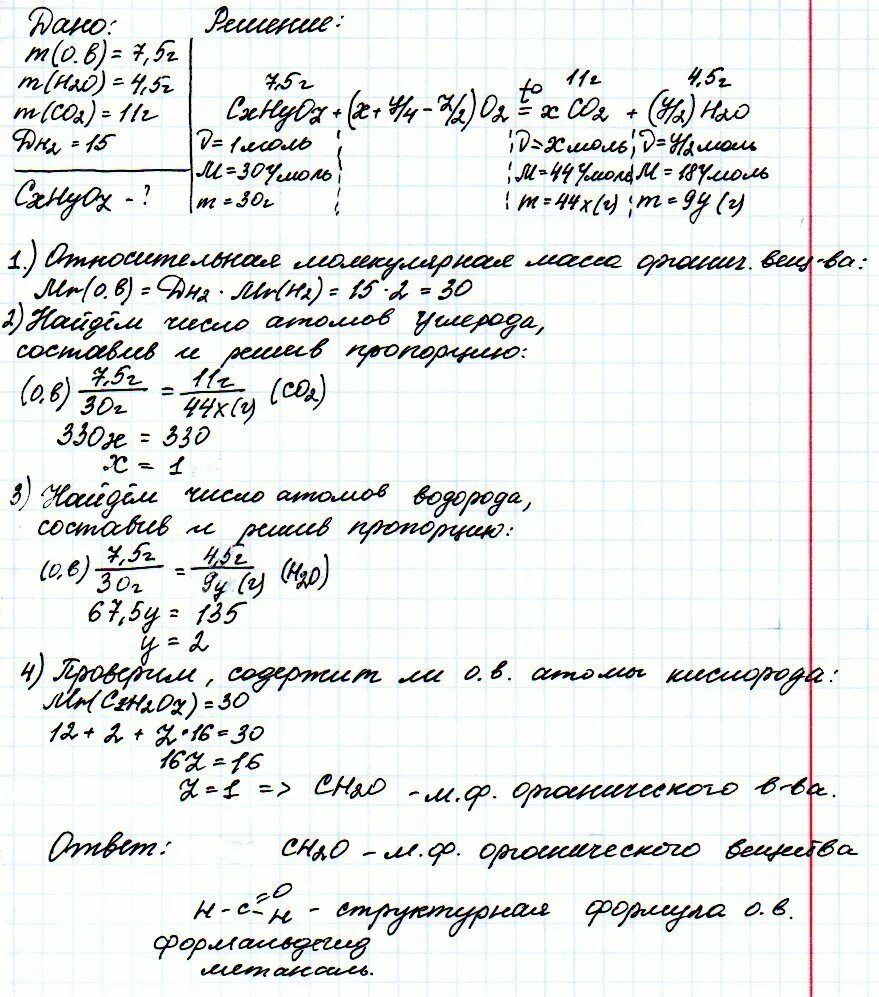 Дано:
m(О.в)= 7,5г
m(H2O)= 4,5г
m(CO2)= 11г
DH2 = 15
CxHyOz - ?
Решение:
7,5г 11г 4,5г
CxHyOz + (x + y/4 - z/2) O2 = t° x CO2 + (y/2) H2O
ν = 1 моль ν = x моль ν = y/2 моль
M = 30 г/моль M = 44 г/моль M = 18 г/моль
m = 30г m = 44x (г) m = 9y (г)
1.) Относительная молекулярная масса органич. вещ-ва:
Mr(О.в) = DH2 · Mr(H2) = 15 · 2 = 30
2) Найдём число атомов углерода,
составив и решив пропорцию:
(О.в) 7,5г/30г = 11г/44x(г) (CO2)
330x = 330
x = 1
3) Найдём число атомов водорода,
составив и решив пропорцию:
(О.в) 7,5г/30г = 4,5г/9y (г) (H2O)
67,5y = 135
y = 2
4) Проверим, содержит ли о.в. атомы кислорода:
Mr(CxH2Oz) = 30
12 + 2 + z · 16 = 30
16z = 16
z = 1 => CH2O - м.ф. органического в-ва.
Ответ: CH2O - м.ф. органического вещества
H - C = O - H - структурная формула о.в.
формальдегид
метаналь.